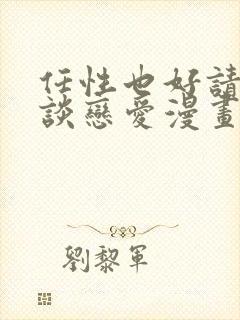 任性也好請
談戀愛漫畫
劉黎軍